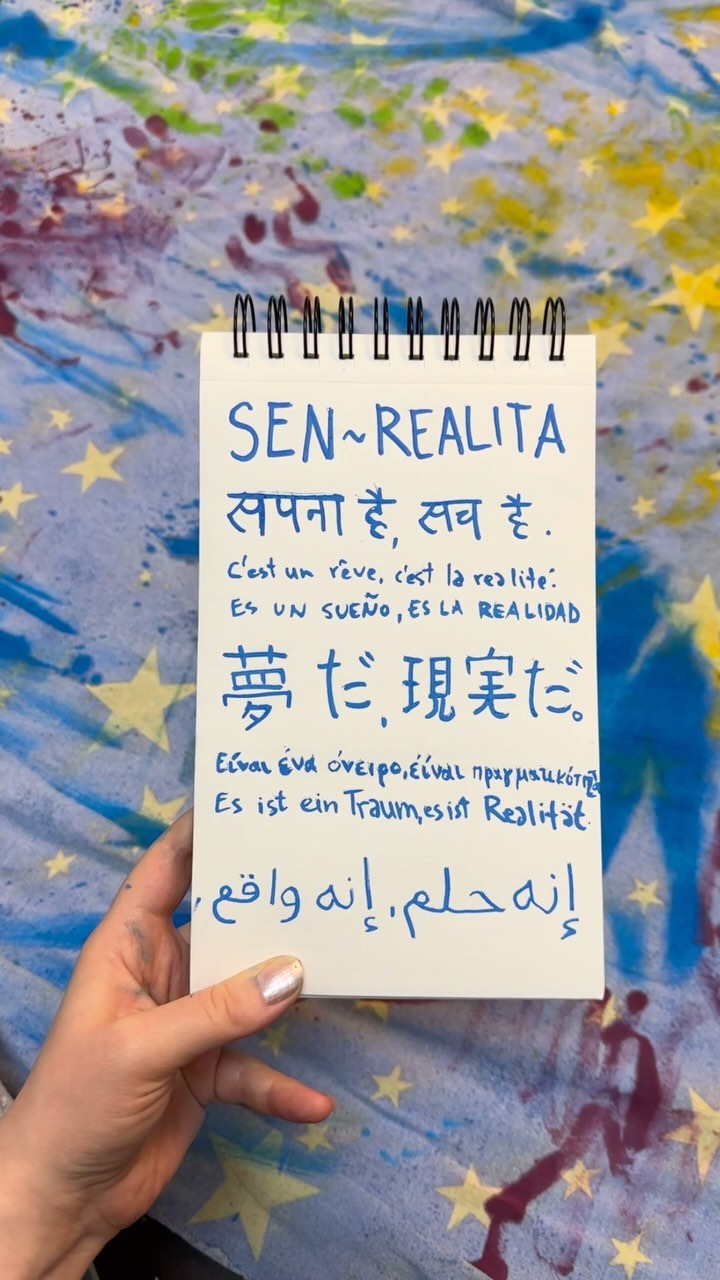 SEN~REALITA
सपना है, सच है.
C'est un rêve, c'est la realité.
ES UN SUEÑO, ES LA REALIDAD
夢だ,現実だ。
Είναι ένα όνειρο, είναι πραγματικότητα
Es ist ein Traum, es ist Realität.
إنه حلم. إنه واقع.